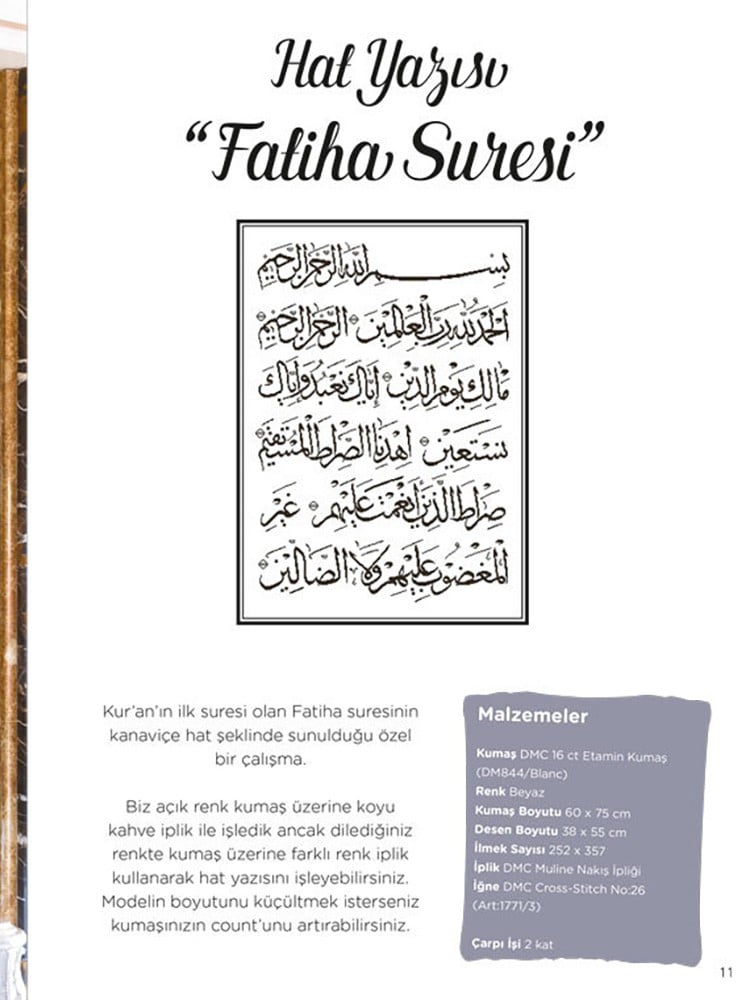 Hat Yazısı
“Fatiha Suresi”
بسم الله الرحمن الرحيم
الحمد لله رب العالمين الرحمن الرحيم
مالك يوم الدين إياك نعبد وإياك
نستعين اهدنا الصراط المستقيم
صراط الذين أنعمت عليهم غير
المغضوب عليهم ولا الضالين
Kur’an’ın ilk suresi olan Fatiha suresinin
kanaviçe hat şeklinde sunulduğu özel
bir çalışma.
Biz açık renk kumaş üzerine koyu
kahve iplik ile işledik ancak dilediğiniz
renkte kumaş üzerine farklı renk iplik
kullanarak hat yazısını işleyebilirsiniz.
Modelin boyutunu küçültmek isterseniz
kumaşınızın count’unu artırabilirsiniz.
Malzemeler
Kumaş DMC 16 ct Etamin Kumaş
(DM844/Blanc)
Renk Beyaz
Kumaş Boyutu 60 x 75 cm
Desen Boyutu 38 x 55 cm
İlmek Sayısı 252 x 357
İplik DMC Muline Nakış İpliği
İğne DMC Cross-Stitch No:26
(Art:1771/3)
Çarpı İşi 2 kat
11